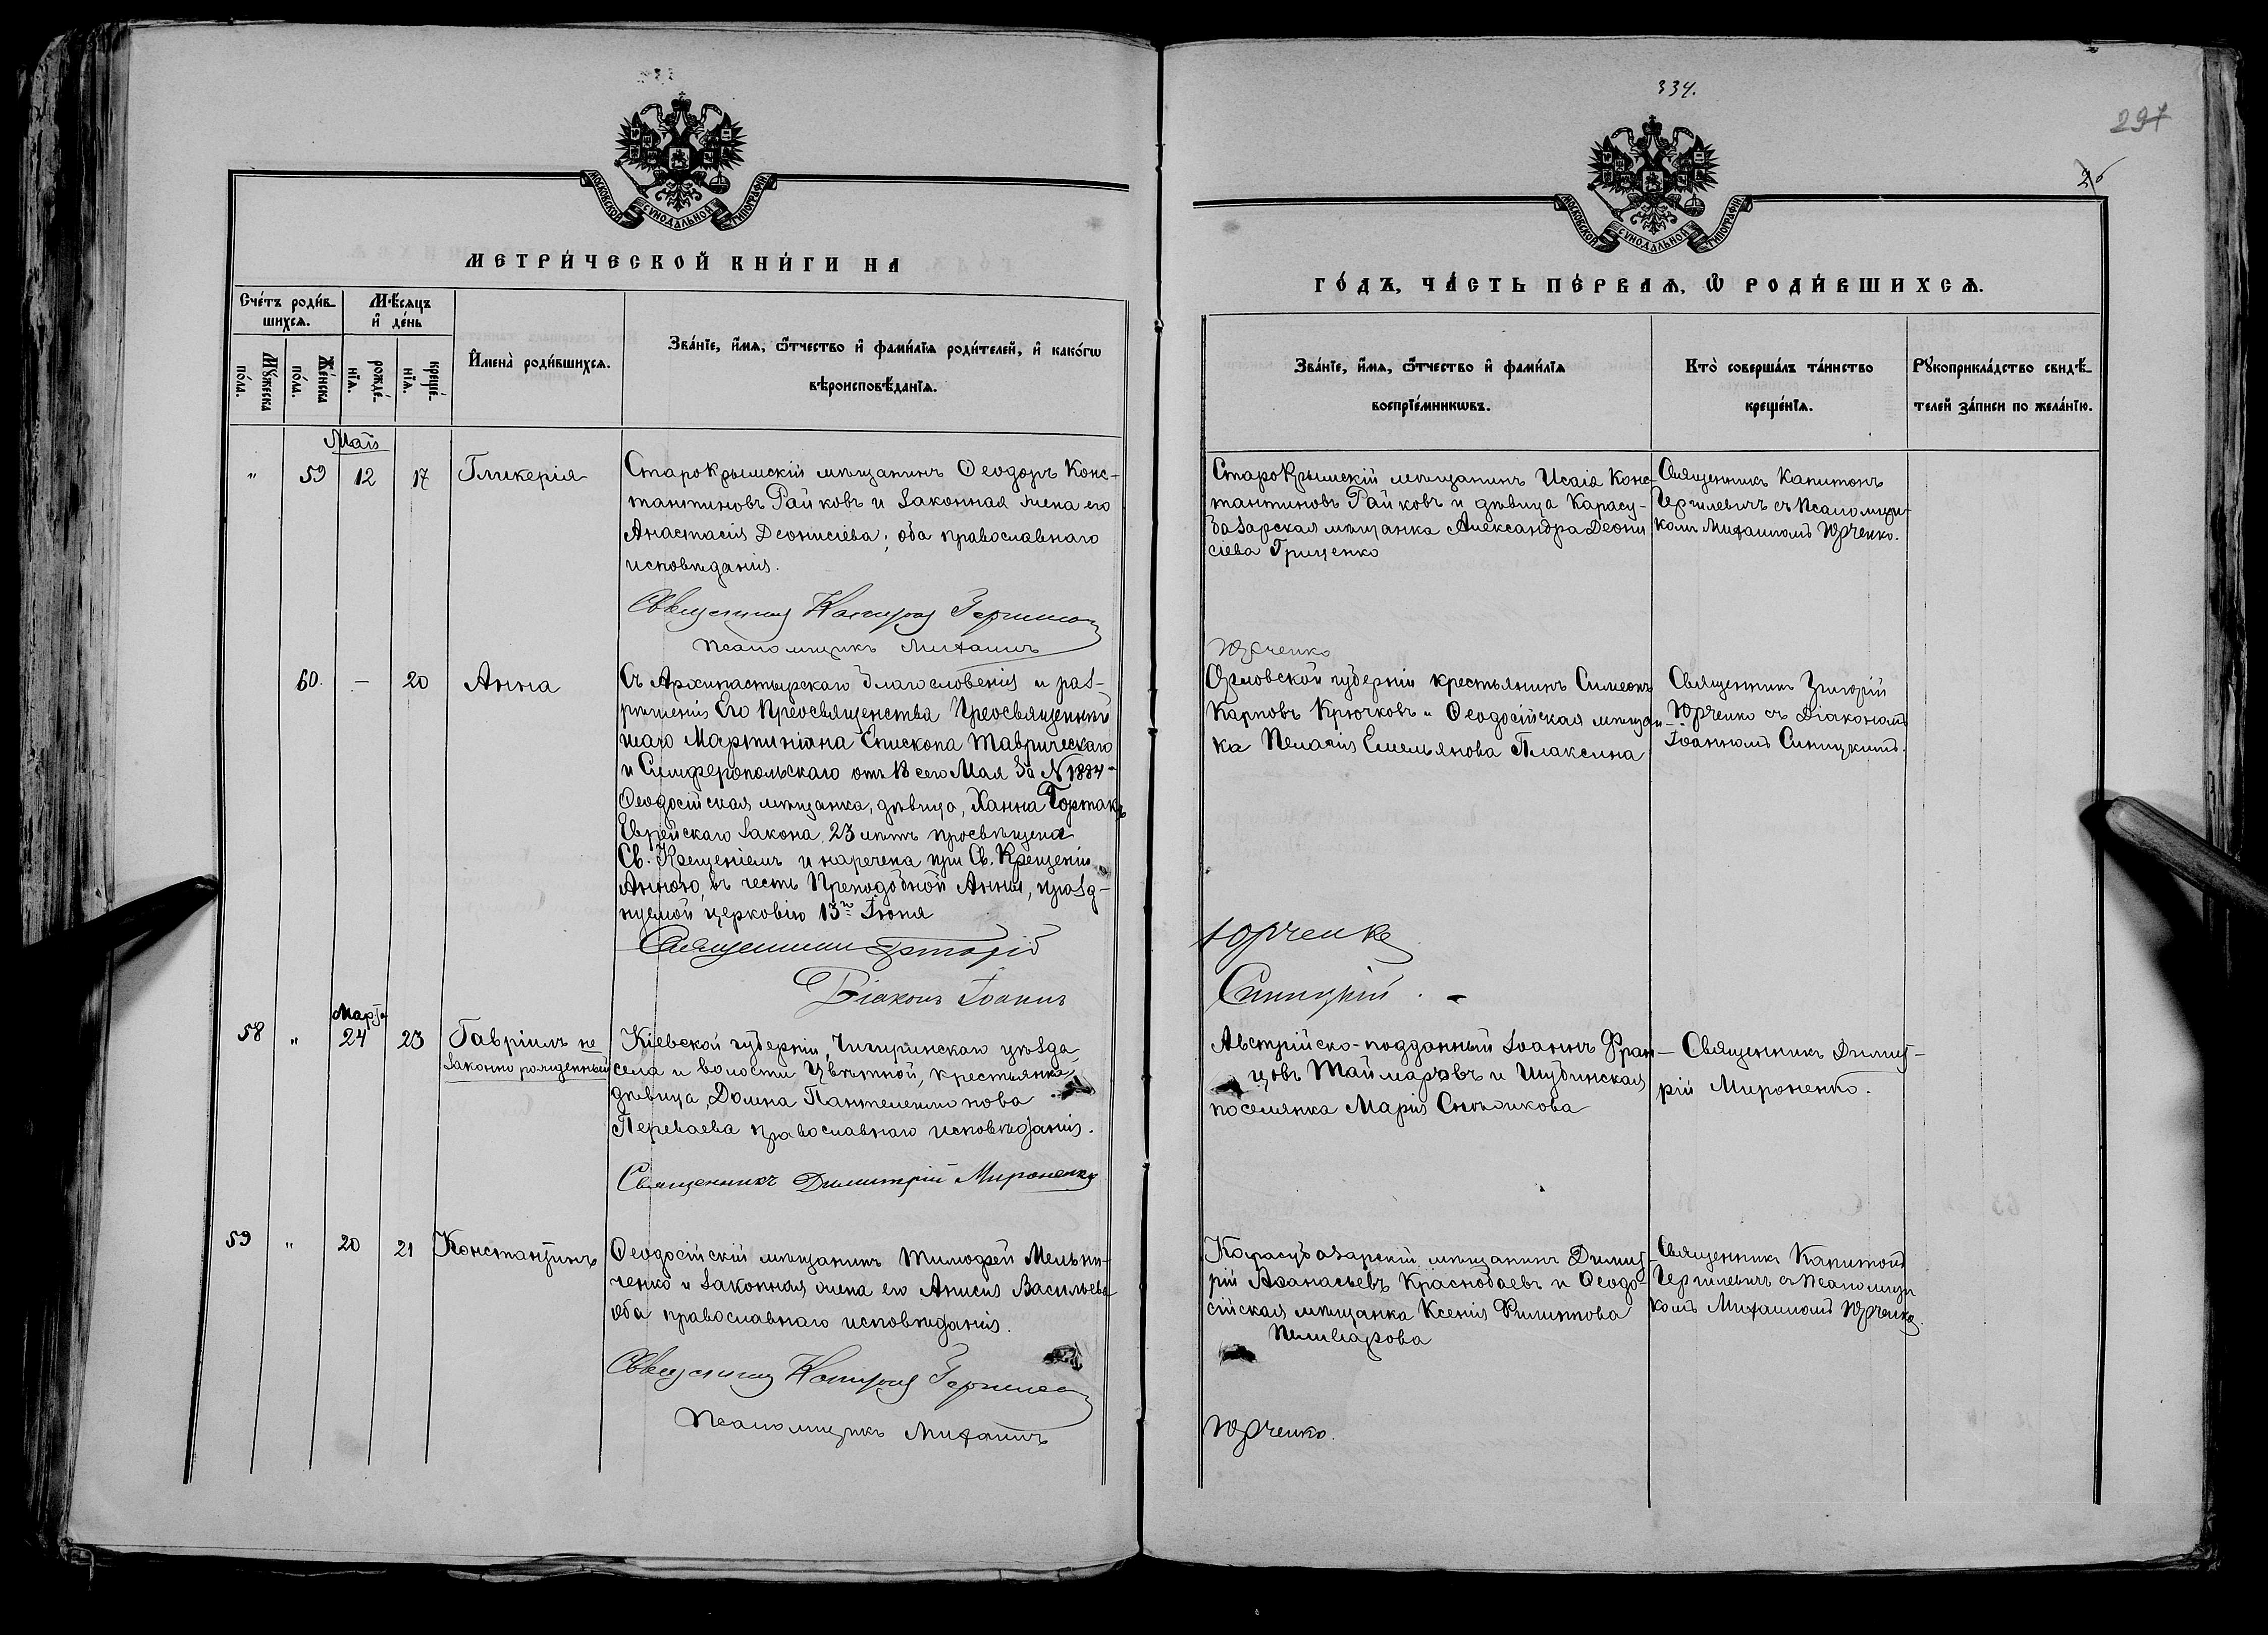 334.
297
26
МОСКОВСКОЙ СѴНОДАЛЬНОЙ ТИПОГРАФІИ
МЕТРИ́ЧЕСКОЙ КНИ́ГИ НА
Сче́тъ роди́в-
шихсѧ.
Мѣ́сѧцъ
и҆ де́нь
Мꙋ́жеска
по́ла.
Же́нска
по́ла.
рожде́-
нїѧ.
креще́-
нїѧ.
И҆мена̀ роди́вшихсѧ.
Зва́нїе, и҆́мѧ, ѻ҆́тчество и҆ фами́лїѧ роди́телей, и҆ како́гѡ
вѣроисповѣ́данїѧ.
Май
" 59 12 17 Гликерія
СтароКрымскій мѣщанинъ Ѳеодоръ Конс-
тантиновъ Райковъ и законная жена его
Анастасія Деонисіева; оба православнаго
исповѣданія.
Священникъ Капитонъ
Псаломщикъ Михаилъ
60. — 20 Анна
Съ Архипастырскаго благословенія и раз-
рѣшенія Его Преосвященства Преосвященнѣй
шаго Мартиніана Епископа Таврическаго
и Симферопольскаго отъ 18 сего Мая за N 1884
Ѳеодосійская мѣщанка, дѣвица, Ханна Гортакъ
Еврейскаго закона, 23 лѣтъ просвѣщена
Св. Крещеніемъ и наречена при Св. Крещеніи
Анною, въ честь Преподобной Анны, празд-
нуемой церковію 13го Іюня
Священникъ Григорій
Діаконъ Іоаннъ
Марта
58 " 24 23 Гавріилъ не
законно рожденный
Кіевской губерніи, Чигиринскаго уѣзда,
села и волости Цвѣтной, крестьянка,
дѣвица, Домна Пантелеимонова
Переваева православнаго исповѣданія.
Священникъ Димитрій Мироненко
59 " 20 21 Константинъ
Ѳеодосійскій мѣщанинъ Тимофей Мельни-
ченко и законная жена его Анисія Васильева
оба православнаго исповѣданія.
Священникъ Капитонъ
Псаломщикъ Михаилъ
МОСКОВСКОЙ СѴНОДАЛЬНОЙ ТИПОГРАФІИ
ГО́ДЪ, ЧА́СТЬ ПЕ́РВАѦ, Ѡ҆ РОДИ́ВШИХСѦ.
Зва́нїе, и҆́мѧ, ѻ҆́тчество и҆ фами́лїѧ
воспрїе́мникѡвъ.
Кто̀ соверша́лъ та́инство
креще́нїѧ.
Рꙋкоприкла́дство свидѣ́-
телей за́писи по жела́нїю.
СтароКрымскій мѣщанинъ Исаія Конс-
тантиновъ Райковъ и дѣвица Карасу-
базарская мѣщанка Александра Деони
сіева Грищенко
Священникъ Капитонъ
Чергилевичъ съ Псаломщи-
комъ Михаиломъ Юрченко.
Юрченко
Орловской губерніи крестьянинъ Симеонъ
Карповъ Крючковъ и Ѳеодосійская мѣщан-
ка Пелагія Емельянова Плаксина
Священникъ Григорій
Юрченко съ Діакономъ
Іоанномъ Синицкимъ.
Юрченко
Синицкій.
Австрійско-подданный Іоаннъ Фран-
цовъ Таймаровъ и Шубинская
поселянка Марія
Священникъ Димит-
рій Мироненко.
Карасубазарскій мѣщанинъ Димит-
рій Аѳанасьевъ Краснобаевъ и Ѳеодо-
сійская мѣщанка Ксенія Филиппова
Пеливарова
Священникъ Капитонъ
Чергилевичъ съ Псаломщи
комъ Михаиломъ Юрченко.
Юрченко.